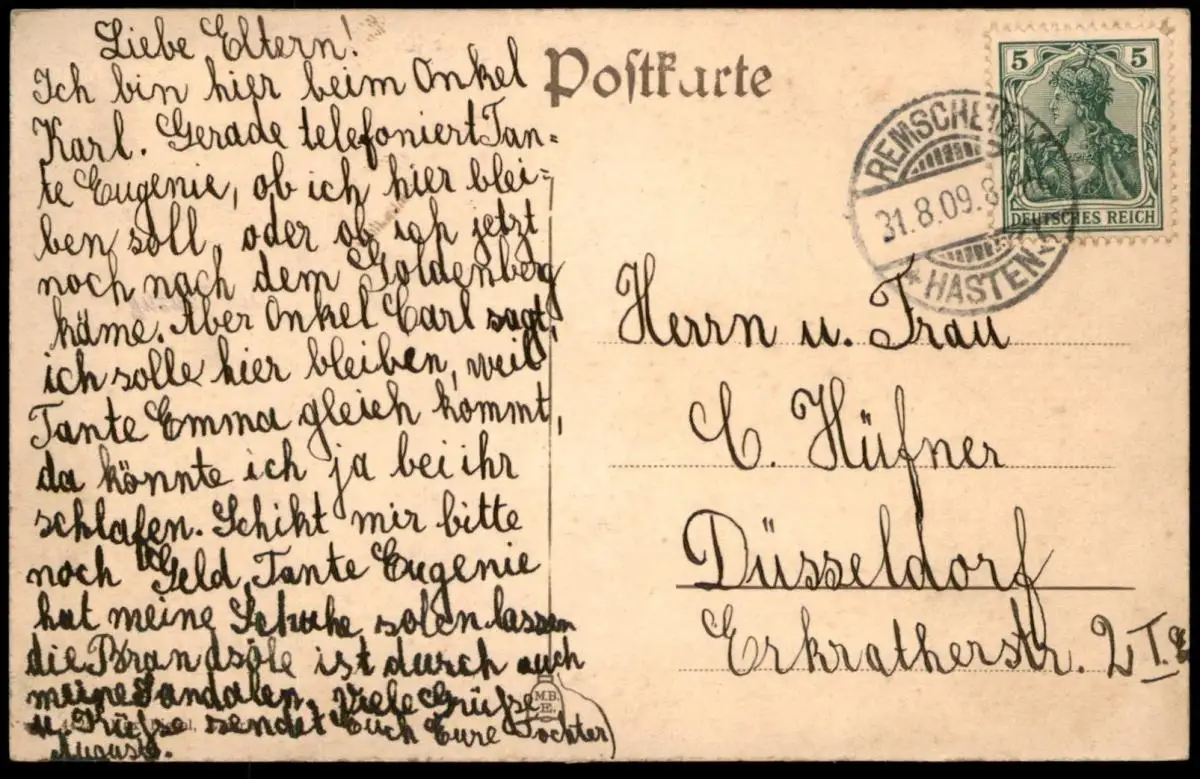 Liebe Eltern!
Ich bin hier beim Onkel
Karl. Gerade telefoniert Tan=
te Eugenie, ob ich hier blei=
ben soll, oder ob ich jetzt
noch nach dem Goldenberg
käme. Aber Onkel Carl sagt,
ich solle hier bleiben, weil
Tante Emma gleich kommt,
da könnte ich ja bei ihr
schlafen. Schikt mir bitte
noch Geld, Tante Eugenie
hat meine Schuhe solen lassen
die Brandsöle ist durch auch
meine Sandalen. Viele Grüße
u. Küße sendet Euch Eure Tochter
August.
Postkarte
5 5
DEUTSCHES REICH
REMSCHEID
31.8.09.8
* HASTEN
Herrn u. Frau
C. Hüfner
Düsseldorf
Erkratherstr. 2 I. E
M.B.
E.